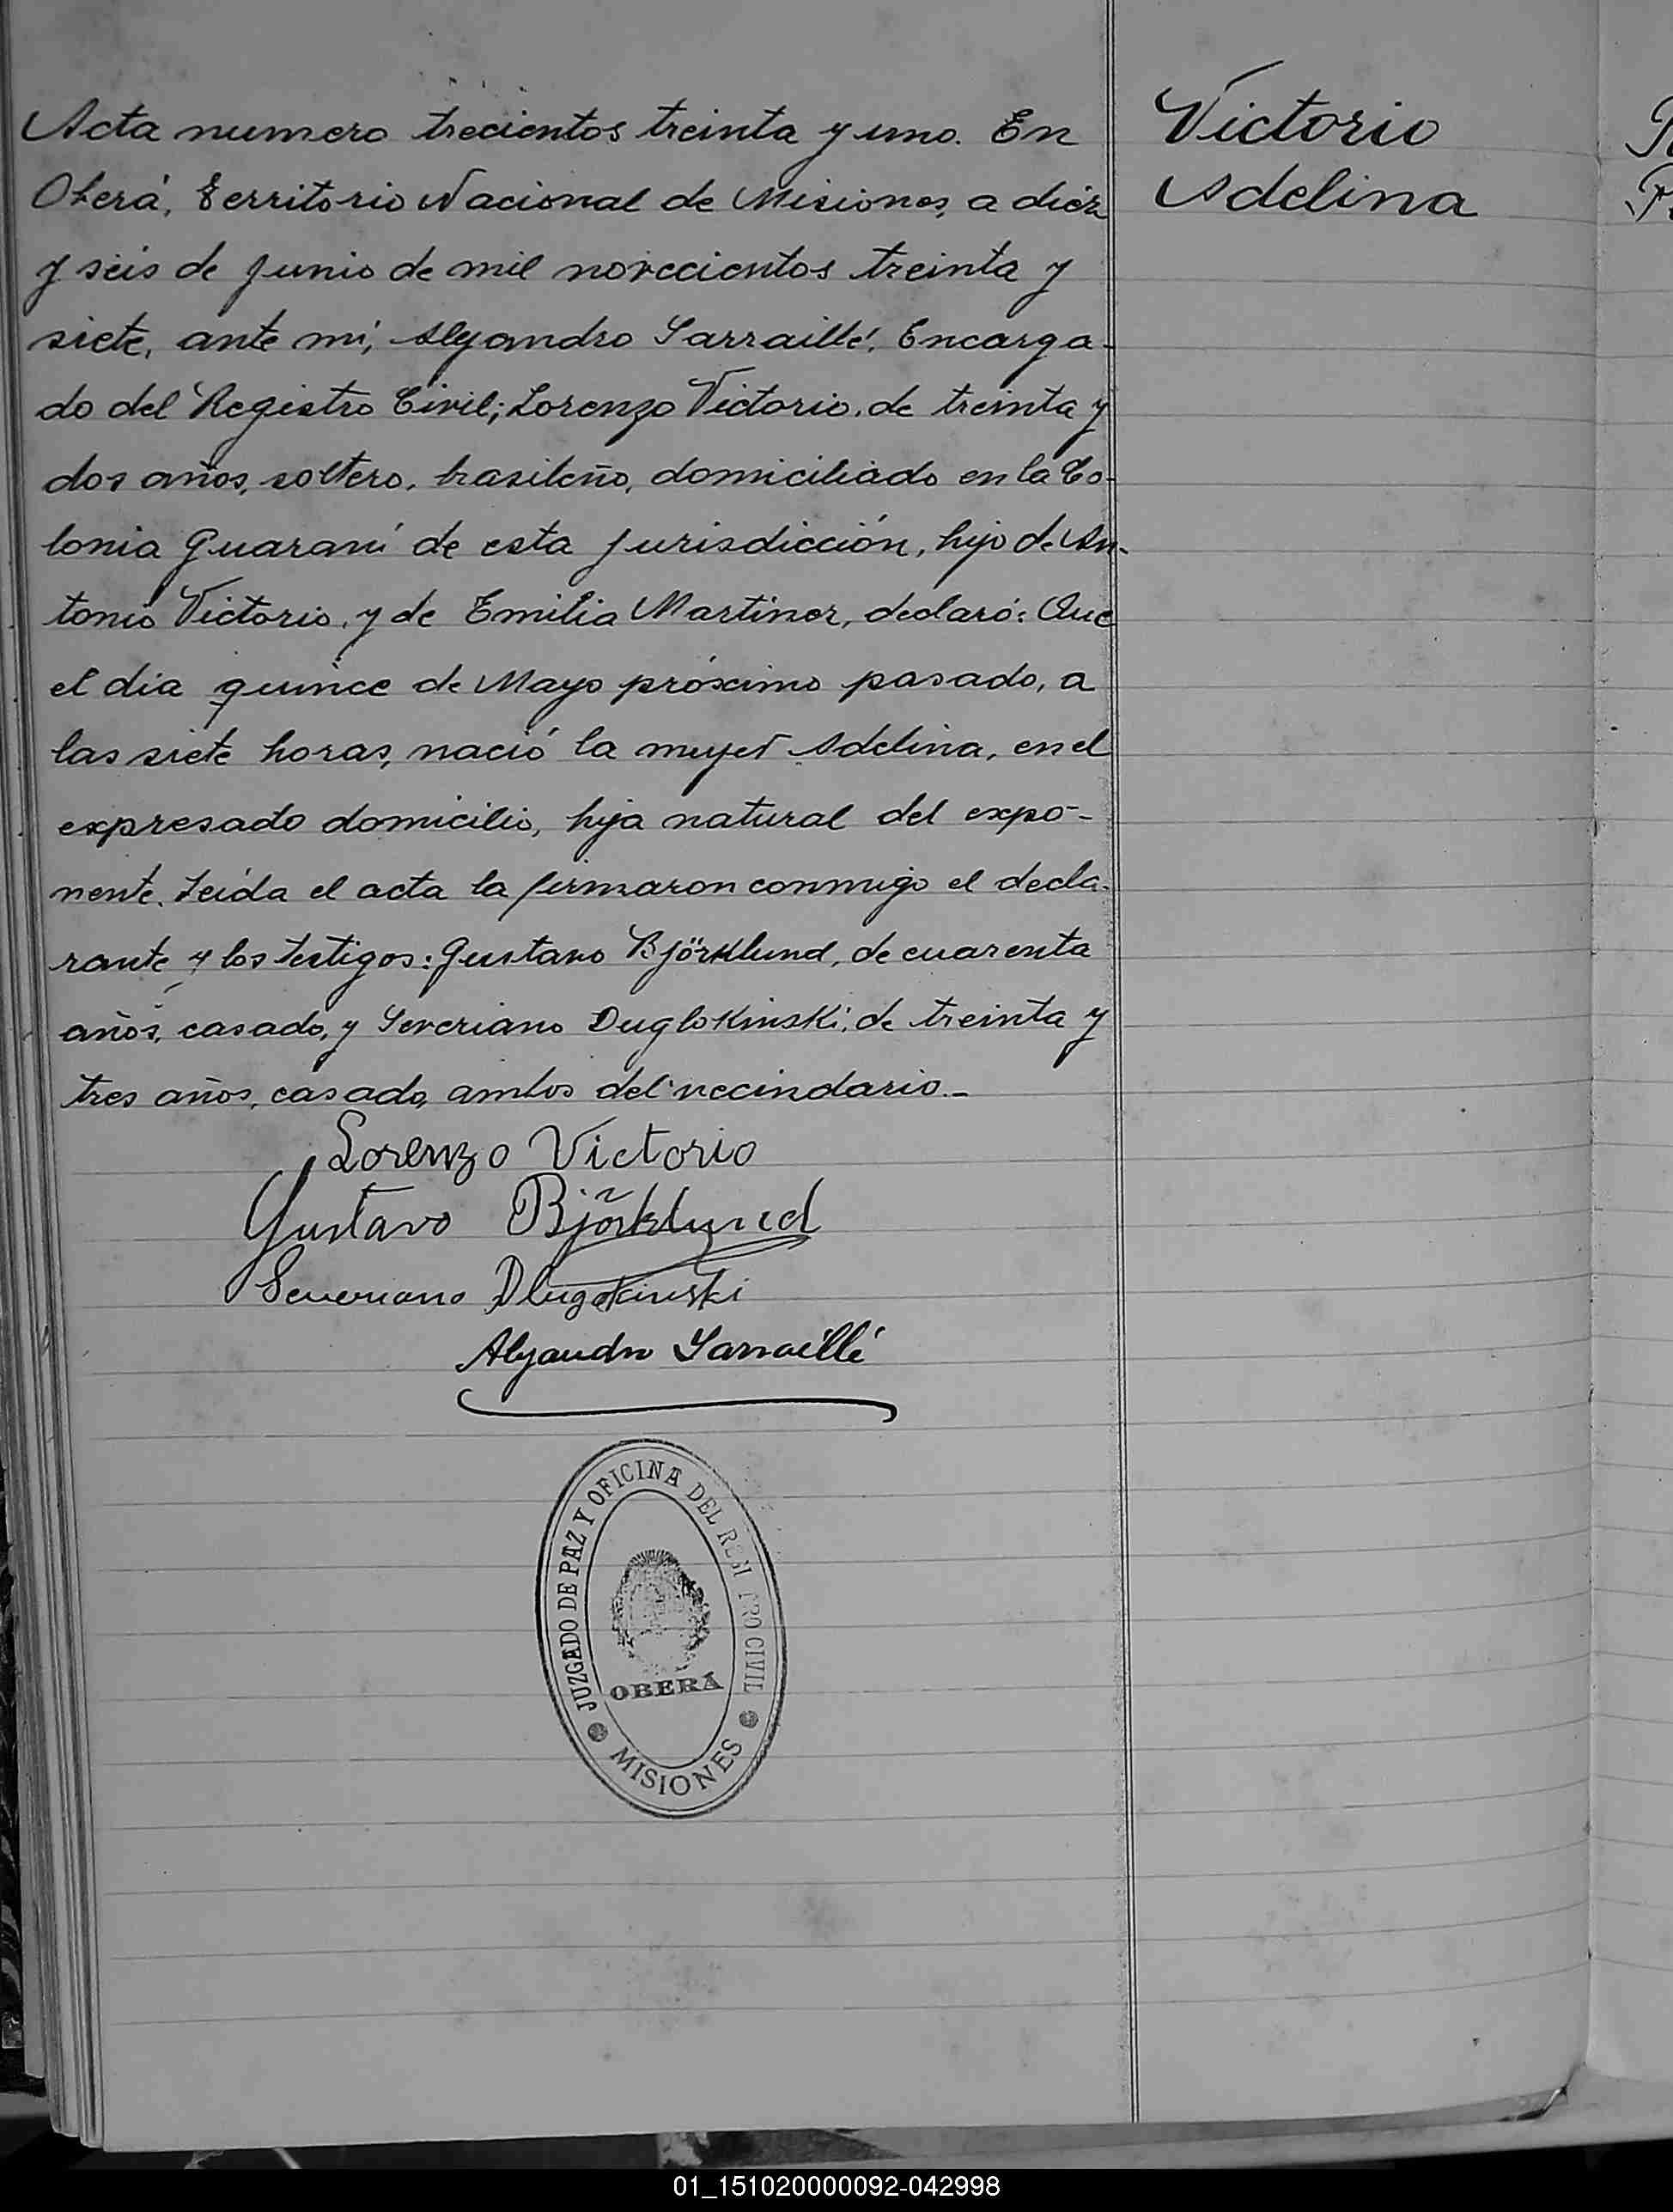 Acta numero trecientos treinta y uno. En
Oberá, Territorio Nacional de Misiones, a diez
y seis de Junio de mil novecientos treinta y
siete, ante mí, Alejandro Sarraillé, Encarga-
do del Registro Civil; Lorenzo Victorio, de treinta y
dos años, soltero, brasileño, domiciliado en la Co-
lonia Guaraní de esta jurisdicción, hijo de An-
tonio Victorio, y de Emilia Martinez, declaró: Que
el dia quince de Mayo próximo pasado, a
las siete horas, nació la mujer Adelina, en el
expresado domicilio, hija natural del expo-
nente. Leída el acta la firmaron conmigo el decla-
rante y los testigos: Gustavo Björklund, de cuarenta
años, casado, y Severiano Duglokinski, de treinta y
tres años, casado, ambos del vecindario.-
Lorenzo Victorio
Gustavo Björklund
Severiano Dlugokinski
Alejandro Sarraillé
JUZGADO DE PAZ Y OFICINA DEL REGISTRO CIVIL
OBERÁ
MISIONES
Victorio
Adelina
01_151020000092-042998